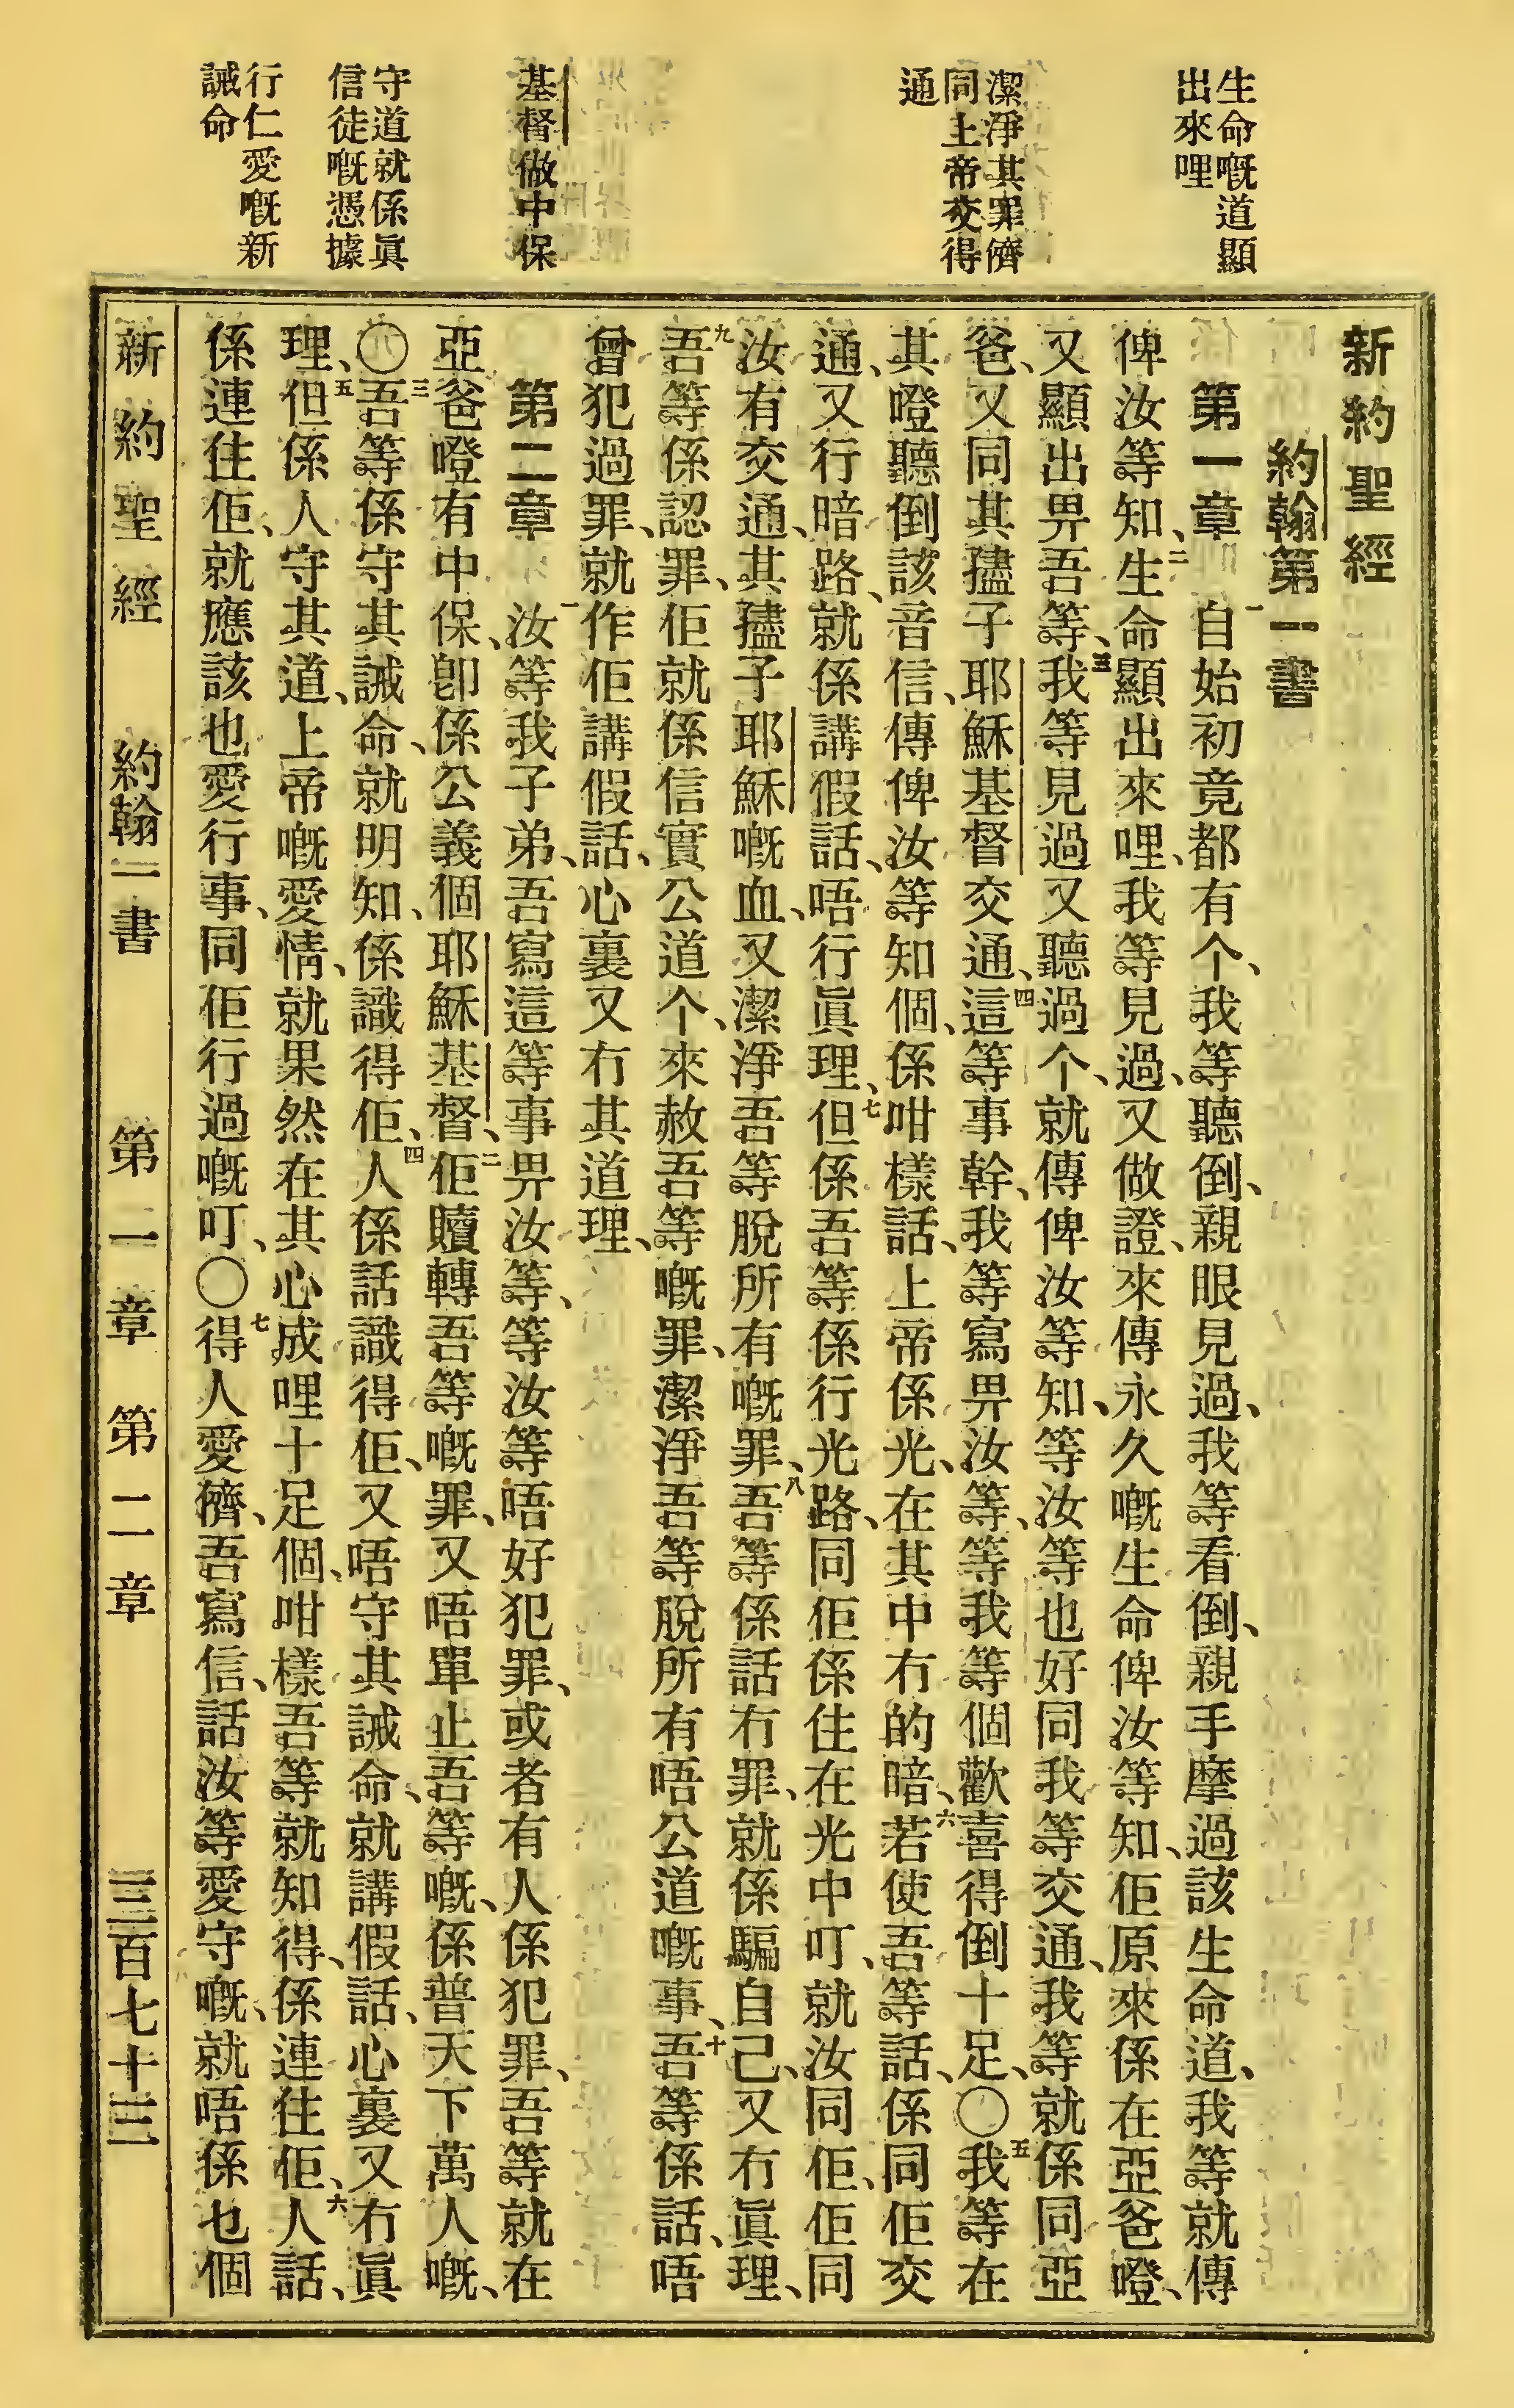 生命嘅道顯
出來哩
潔淨其罪儕
同上帝交得
通
基督做中保
守道就係眞
信徒嘅憑據
行仁愛嘅新
誡命
新約聖經
約翰第一書
第一章 一自始初竟都有个、我等聽倒、親眼見過、我等看倒、親手摩過該生命道、我等就傳
俾汝等知、二生命顯出來哩、我等見過、又做證、來傳永久嘅生命俾汝等知、佢原來係在亞爸嶝、
又顯出畀吾等、三我等見過又聽過个、就傳俾汝等知、等汝等也好同我等交通、我等就係同亞
爸、又同其𤘅子耶穌基督交通、四這等事幹、我等寫畀汝等、等我等個歡喜得倒十足、〇五我等在
其嶝聽倒該音信、傳俾汝等知個、係咁樣話、上帝係光、在其中冇的暗、六若使吾等話、係同佢交
通、又行暗路、就係講假話、唔行眞理、七但係吾等係行光路、同佢係住在光中叮、就汝同佢、佢同
汝有交通、其𤘅子耶穌嘅血、又潔淨吾等脫所有嘅罪、八吾等係話冇罪、就係騙自己、又冇眞理、
九吾等係認罪、佢就係信實公道个、來赦吾等嘅罪、潔淨吾等脫所有唔公道嘅事、十吾等係話、唔
曾犯過罪、就作佢講假話、心裏又冇其道理、
第二章 一汝等我子弟、吾寫這等事畀汝等、等汝等唔好犯罪、或者有人係犯罪、吾等就在
亞爸嶝有中保、卽係公義個耶穌基督、二佢贖轉吾等嘅罪、又唔單止吾等嘅、係普天下萬人嘅、
〇三吾等係守其誡命、就明知、係識得佢、四人係話識得佢、又唔守其誡命、就講假話、心裏又冇眞
理、五但係人守其道、上帝嘅愛情、就果然在其心成哩十足個、咁樣吾等就知得、係連住佢、六人話、
係連住佢、就應該也愛行事、同佢行過嘅叮、〇七得人愛儕、吾寫信、話汝等愛守嘅、就唔係乜個
新約聖經 約翰一書 第一章 第二章 三百七十三